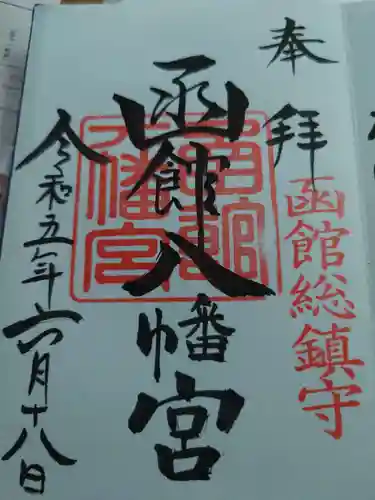 奉拝
函館総鎮守
函館八幡宮
函館八幡宮
令和五年六月十八日